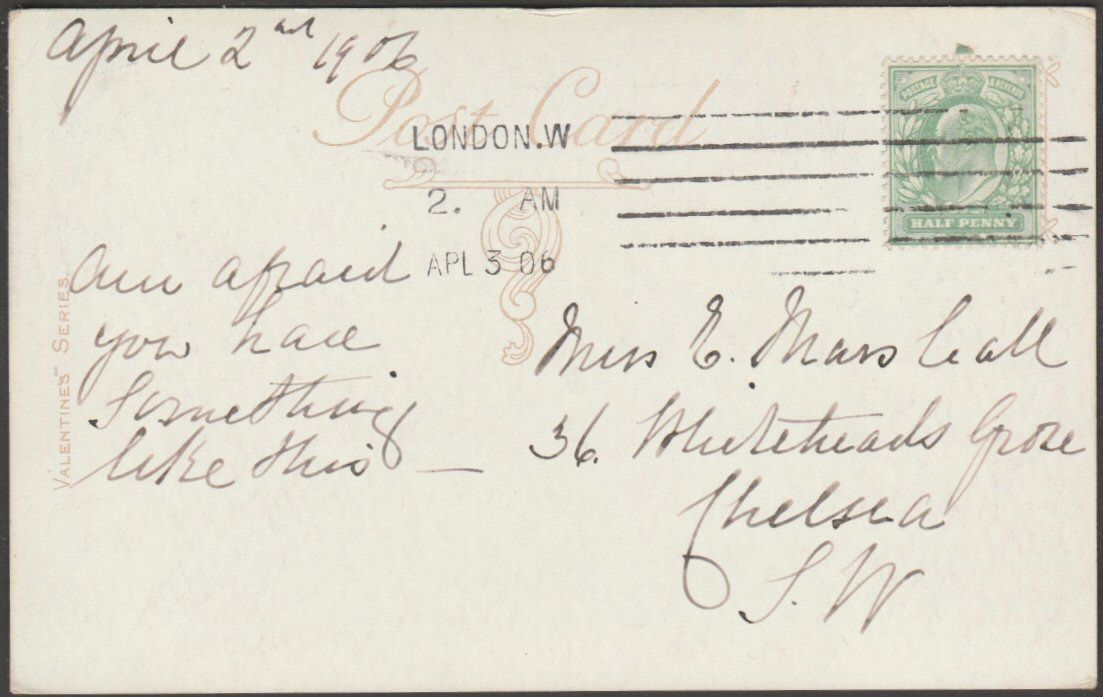 April 2nd 1906
Post Card
LONDON.W
2. AM
APL 3 06
POSTAGE & REVENUE
HALF PENNY
VALENTINES' SERIES
Am afraid
you have
something
like this —
Miss E. Marshall
36. Whiteheads Grove
Chelsea
S.W